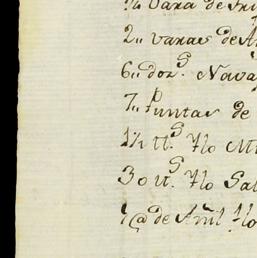 ¼ Vara de
2„ varas de
6„ dozˢ. Nava
7„ Puntas de
1½ ttˢ. Ylo
30 ttˢ. Ylo Sal
½ @ de Añil Ylo